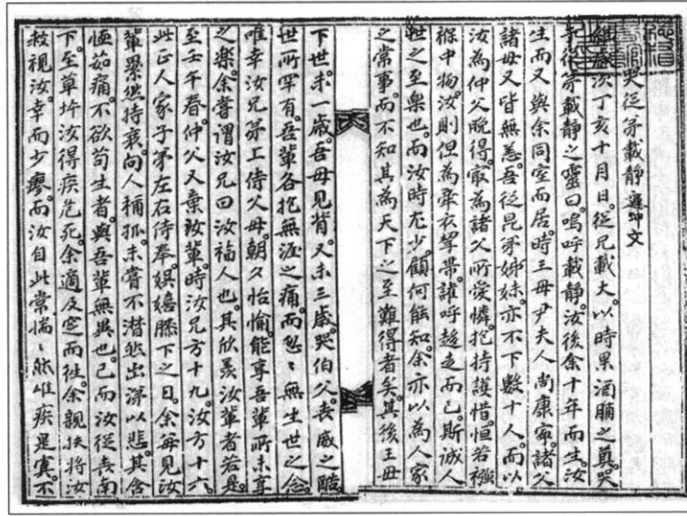 哭從弟載靜運坤文
維歲次丁亥十月日。從兄載大。以時果酒脯之奠。哭
于從弟載靜之靈曰。嗚呼載靜。汝後余十年而生。汝
生而又與余同室而居。時王母尹夫人尚康寧。諸父
諸母又皆無恙。吾從昆弟姊妹。亦不下數十人。而以
汝為仲父晚得。㝡為諸父所愛憐。抱持護惜。恒若襁
褓中物。汝則但為牽衣挈帶。讙呼趍走而已。斯誠人
世之至樂也。而汝時尤少。顧何能知。余亦以為人家
之常事。而不知其為天下之至難得者矣。其後王母
下世。未一歲。吾母見背。又未三歲。哭伯父。喪威之酷。
世所罕有。吾輩各抱無涯之痛。而忽忽無生世之念。
唯幸汝兄弟工侍父母。朝夕怡愉。能享吾輩所未享
之樂。余嘗謂汝兄曰。汝福人也。其欣羨汝輩者若是。
至壬午春。仲父又棄汝輩。時汝兄方十九。汝方十六。
此正人家子弟左右侍奉。娛嬉膝下之日。余每見汝
輩纍然持衰。向人稱孤。未嘗不潜然出涕以悲。其含
恤茹痛。不欲苟生者。與吾輩無異也。已而汝從喪南
下。至草圤。汝得疾危死。余適及窆而徃。余親扶將汝
救視。汝幸而少瘳。而汝自此常惴惴。然唯疾是虞。不